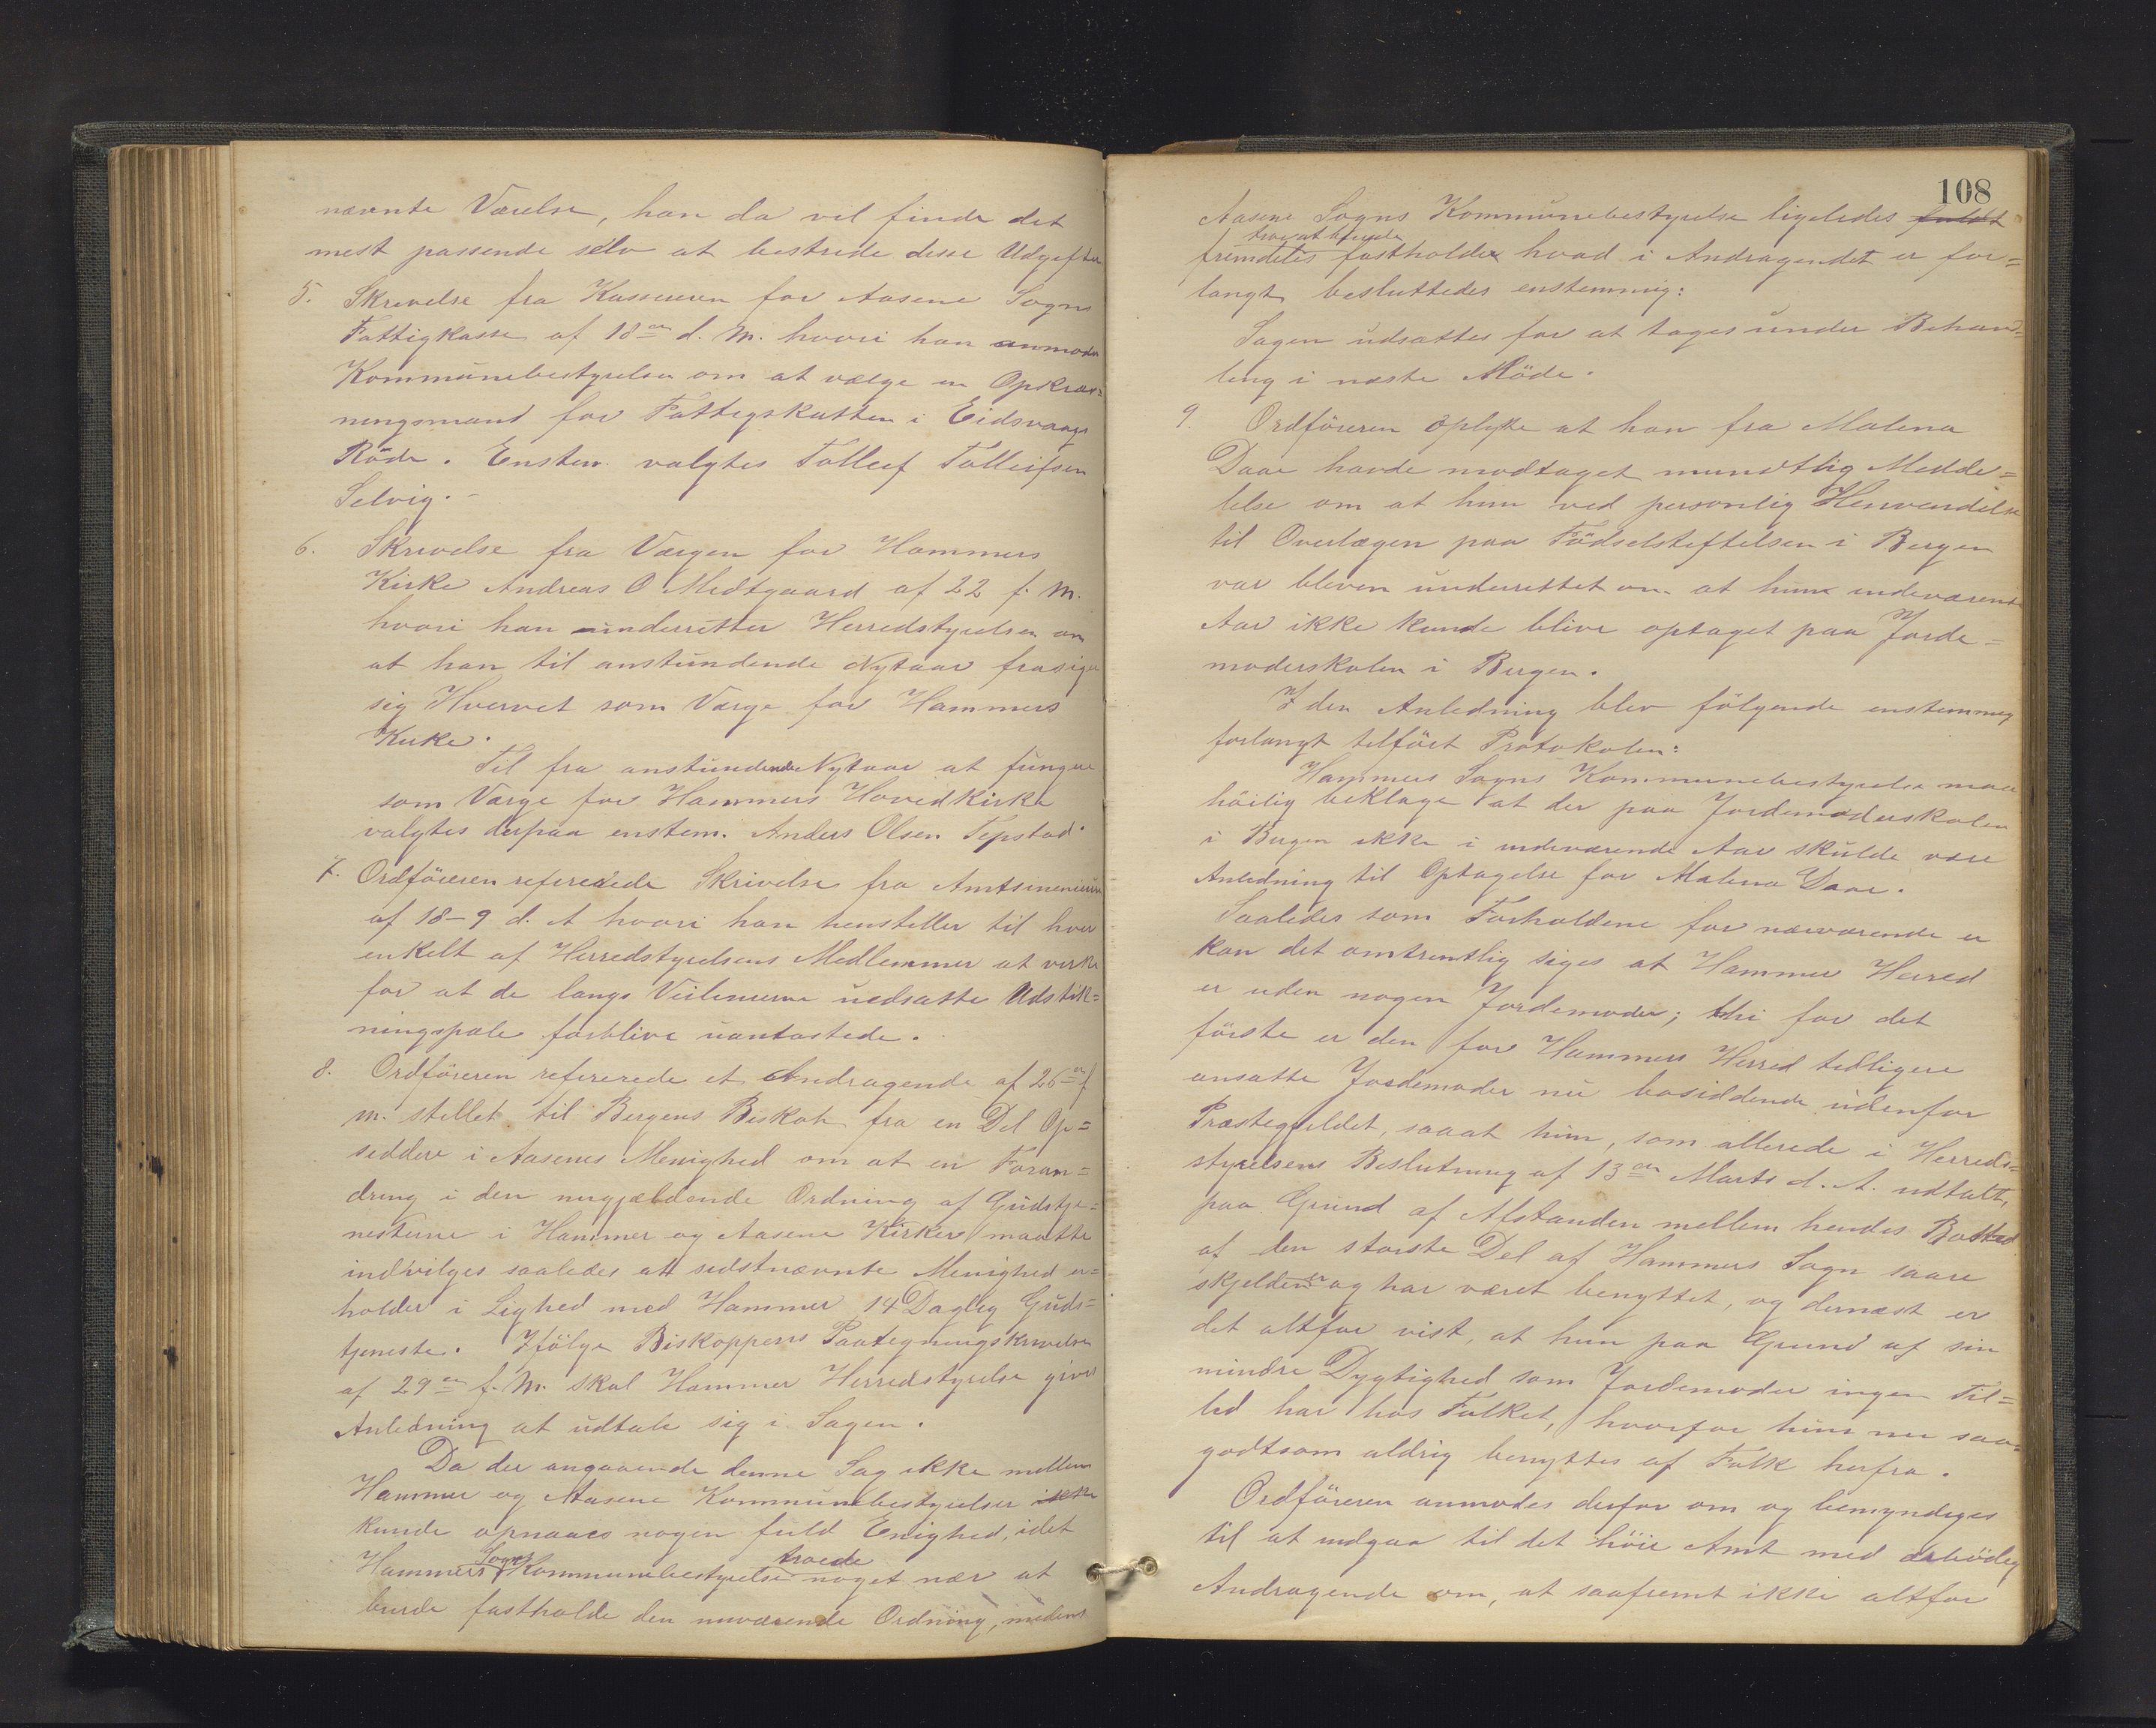 nævnte Værelse, han da vel finde det
mest passende selv at bestride disse Udgifter
5. Skrivelse fra Kassereren for Aasene Sogns
Fattigkasse af 18de d. M. hvori han anmoder
Kommunebestyrelsen om at vælge en Opkræv=
ningsmand for Fattigskatten i Eidsvaags
Rode. Enstem. valgtes Tolleif Tolleifsen
Selvig.-
6. Skrivelse fra Værgen for Hammers
Kirke Andreas O Midtgaard af 22 f. M.
hvori han underretter Herredstyrelsen om
at han til anstundende Nytaar frasiger
sig Hvervet som Værge for Hammers
Kirke.
Til fra anstundende Nytaar at fungere
som Værge for Hammers Hovedkirke
valgtes derpaa enstem. Anders Olsen Tepstad.
7. Ordföreren refererede Skrivelse fra Amtsineniøren
af 18-9 d. A hvori han henstiller til hver
enkelt af Herredstyrelsens Medlemmer at virke
for at de langs Veilinierne nedsatte Udstik=
ningspæle forblive uantastede.
8. Ordföreren refererede et Andragende af 26de f
M. stillet til Bergens Biskop fra en Del Op=
siddere i Aasenes Menighed om at en Foran=
dring i den nugjældende Ordning af Gudstje=
nesterne i Hammer og Aasene Kirker maatte
indvilges saaledes att sidstnævnte Menighed er=
holder i Lighed med Hammer 14 Daglig Guds=
tjeneste. Ifölge Biskoppens Paategningsskrivelse
af 29de f. M. skal Hammer Herredstyrelse gives
Anledning at udtale sig i Sagen.
Da der angaaende denne Sag ikke mellem
Hammer og Aasene Kommunebestyrelser ikke
kunde opnaaes nogen fuld Enighed, idet
Hammers Sogns Kommunebestyrelse troede noget nær at
burde fastholde den nuværende Ordning, medens
108
Aasene Sogns Kommunebestyrelse ligeledes fuldt
troe at burde
fremdeles fastholde hvad i Andragendet er for=
langt, besluttedes enstemmig:
Sagen udsættes for at tages under Behand=
ling i næste Möde.
9. Ordföreren oplyste at han fra Malena
Daae havde modtaget mundtlig Medde=
lelse om at hun ved personlig Henvendelse
til Overlægen paa Födselstiftelsen i Bergen
var bleven underrettet om at hun indeværende
Aar ikke kunde blive optaget paa Jorde=
moderskolen i Bergen.
I den Anledning blev fölgende enstemmig
forlangt tilfört Protokolen:
Hammers Sogns Kommunebestyrelse maa
höilig beklage at der paa Jordemoderskolen
i Bergen ikke i indeværende Aar skulde være
Anledning til Optagelse for Malena Daae.
Saaledes som Forholdene for nærværende er
kan det omtrentlig siges at Hammer Herred
er uden nogen Jordemoder; thi for det
förste er den for Hammers Herred tidligere
ansatte Jordemoder nu bosiddende udenfor
Præstegjeldet, saaat hun, som allerede i Herreds=
styrelsens Beslutning af 13de Marts d. A. udtalt,
paa Grund af Afstanden mellem hendes Bosted
af den störste Del af Hammers Sogn saare
skjelden er og har været benyttet, og dernæst er
det altfor vist, at hun paa Grund af sin
mindre Dygtighed som Jordemoder ingen Til=
lid har hos Folket, hvorfor hun nu saa=
godtsom aldrig benyttes af Folk herfra.
Ordföreren anmodes derfor om og bemyndiges
til at indgaa til det höie Amt med ærbödig
Andragende om, at saafremt ikke altfor